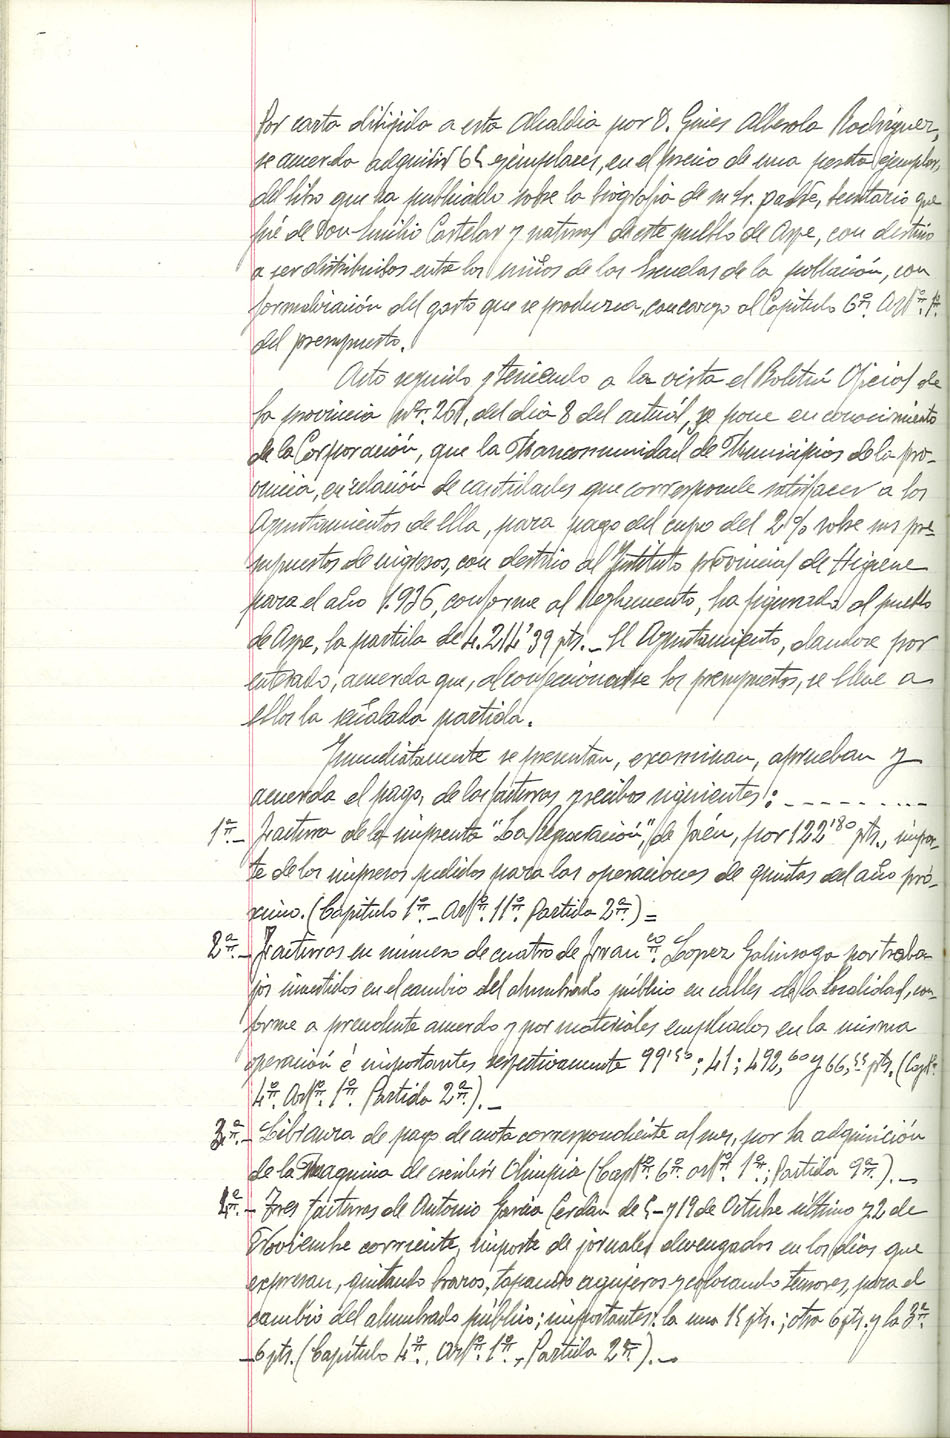 Por carta dirigida a esta Alcaldia por D. Ginés Alberola Rodríguez,
se acuerda adquirir 65 ejemplares, en el precio de una peseta ejemplar,
del libro que ha publicado sobre la biografia de su Sr. padre, secretario que
fué de Don Emilio Castelar y natural de este pueblo de Aspe, con destino
a ser distribuidos entre los niños de las Escuelas de la población, con
formalización del gasto que se produzca, con cargo al Capitulo 6º. Artº. 1º.
del presupuesto.
Acto seguido y teniendo a la vista el Boletin Oficial de
la provincia nº. 261, del dia 8 del actual, se pone en conocimiento
de la Corporación, que la Mancomunidad de Municipios de la pro-
vincia, en relación de cantidades que corresponde satisfacer a los
Ayuntamientos de ella, para pago del cupo del 2% sobre sus pre-
supuestos de ingresos, con destino al Instituto provincial de Higiene
para el año 1.936, conforme al Reglamento, ha figurado al pueblo
de Aspe, la partida de 4.214'39 pts. _ El Ayuntamiento, dandose por
enterado, acuerda que, al confeccionarse los presupuestos, se lleve a
ellos la señalada partida.
Inmediatamente se presentan, examinan, aprueban y
acuerda el pago, de las facturas y recibos siguientes: - - - - - - - - -
1ª. - Factura de la imprenta "La Reparación", de Jaén, por 122'80 pts., impor-
te de los impresos pedidos para las operaciones de quintas del año pró-
ximo. (Capitulo 1º. - Artº. 11º. Partida 2ª.) =
2ª. - Facturas en número de cuatro de Franco. López Galinsoga por traba-
jos invertidos en el cambio del alumbrado público en calles de la localidad, con-
forme a precedente acuerdo y por materiales empleados en la misma
operación é importantes respectivamente 99'50; 41; 492,60 y 66,55 pts. (Captº.
4º. Artº. 1º. Partida 2ª.). _
3ª. - Libranza de pago de cuota correspondiente al mes, por la adquisición
de la Maquina de escribir Olimpia (Captº. 6º. artº. 1º.; Partida 9ª.). _
4ª. - Tres facturas de Antonio García Cerdán de 5 - y 19 de Octubre ultimo y 2 de
Noviembre corriente, importe de jornales devengados en los dias que
expresan, quitando brazos, tapando agujeros y colocando tensores, para el
cambio del alumbrado público; importantes: la una 15 pts.; otra 6 pts. y la 3ª.
- 6 pts. (Capítulo 4º. Artº. 1º., Partida 2ª.). _